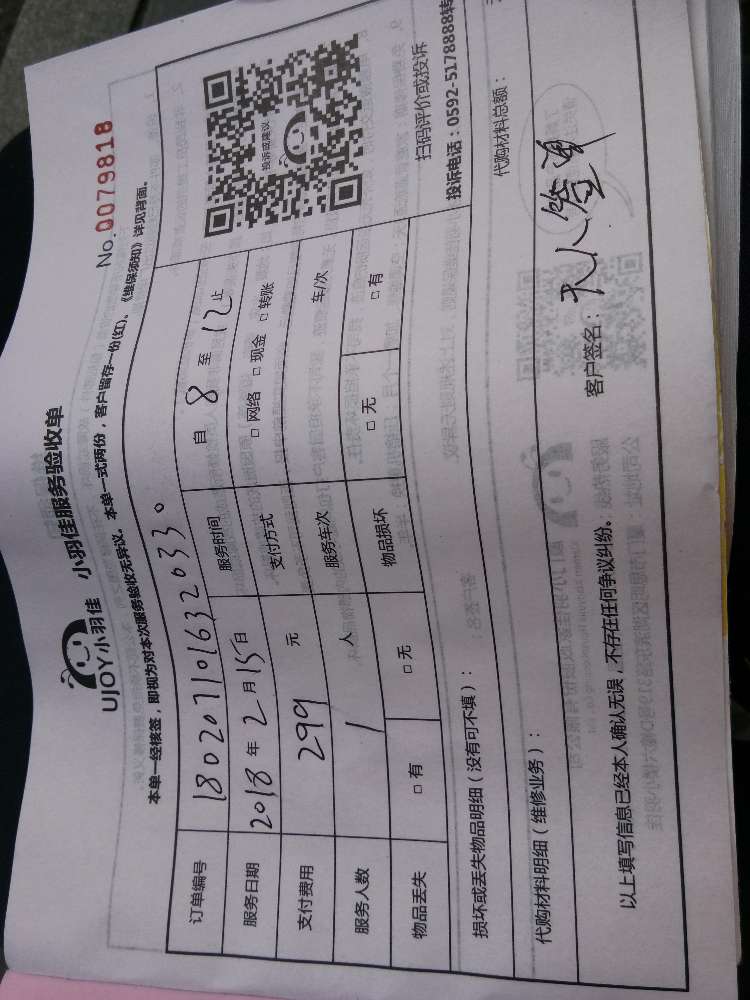 No.0079818
UJOY小羽佳 小羽佳服务验收单
本单一经核签，即视为对本次服务验收无异议。本单一式两份，客户留存一份(红)。《维保须知》详见背面。
订单编号 180207101632033。
服务日期 2018年2月15日 服务时间 自 8 至 12 止
支付费用 299 元 支付方式 □ 网络 □ 现金 □ 转账
服务人数 1 人 服务车次 车/次
物品丢失 □ 有 □ 无 物品损坏 □ 无 □ 有
投诉或建议
扫码评价或投诉
投诉电话：0592-5178888转
损坏或丢失物品明细（没有可不填）：
代购材料明细（维修业务）： 代购材料总额：
以上填写信息已经本人确认无误，不存在任何争议纠纷。
客户签名：